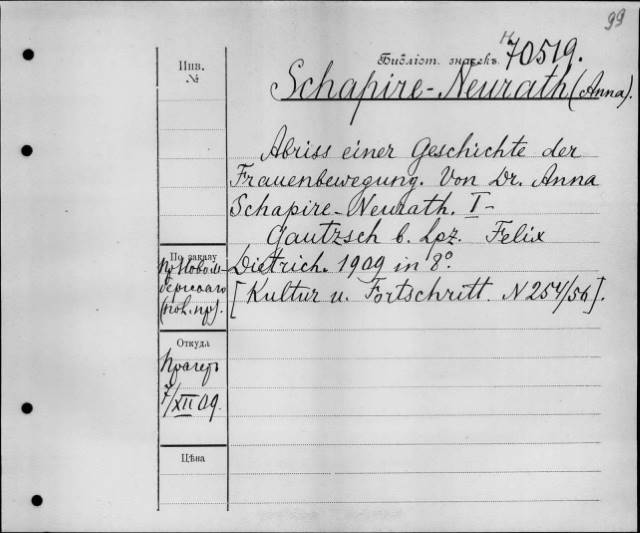 99
Инв.
№
Библіот. значекъ.
H 70519.
Schapire-Neurath (Anna).
Abriss einer Geschichte der
Frauenbewegung. Von Dr. Anna
Schapire-Neurath. I-
Gautzsch b. Lpz. Felix
Dietrich. 1909 in 8º.
[Kultur u. Fortschritt. N 254/56].
По заказу
Откуда
Прагеръ
7/XII 09.
Цѣна